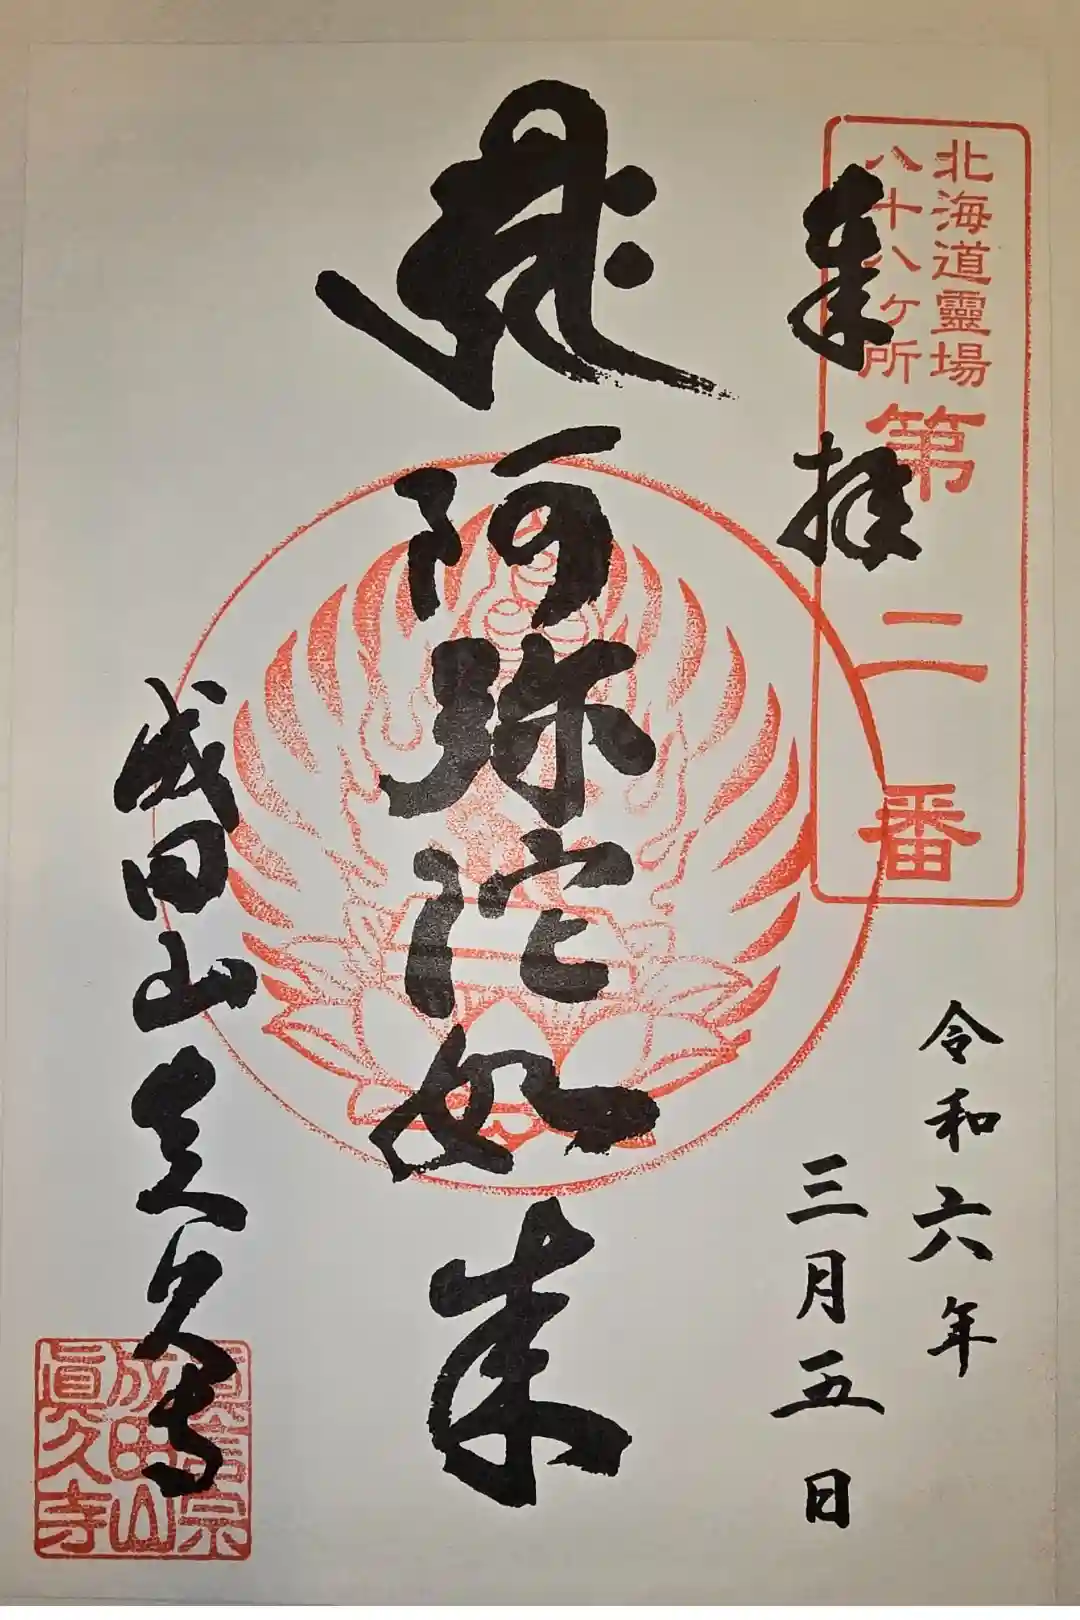 北海道靈場
八十八ヶ所
第二番
奉拝
令和六年
三月五日
阿弥陀如来
成田山真久寺
真言宗
成田山
眞久寺